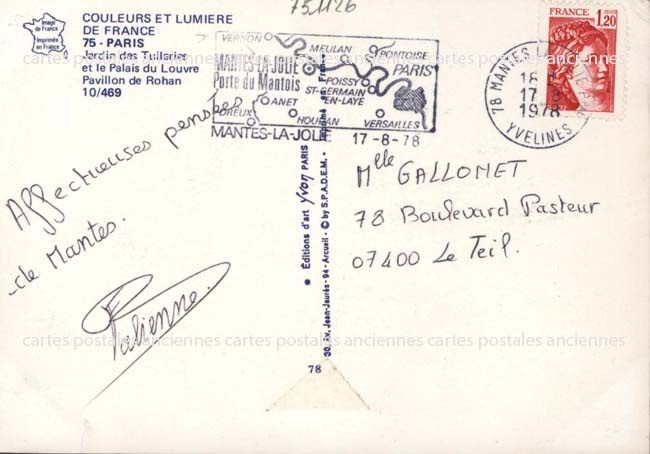 751126
Image
de France
Imprimée
en France
COULEURS ET LUMIERE
DE FRANCE
75 - PARIS
Jardin des Tuileries
et le Palais du Louvre
Pavillon de Rohan
10/469
VERNON
MEULAN
PONTOISE
MANTES-LA-JOLIE
Porte du Mantois
PARIS
POISSY
ST-GERMAIN
EN-LAYE
ANET
DREUX
HOUDAN
VERSAILLES
MANTES-LA-JOLIE 17-8-78
FRANCE
1,20
78 MANTES LA JOLIE
18 H
17-8
1978
YVELINES
Affectueuses pensées
de Mantes.
Mlle GALLONET
78 Boulevard Pasteur
07400 Le Teil.
Editions d'art yvon PARIS
30, Av. Jean-Jaurès - 94 - Arcueil - © by S.P.A.D.E.M. - Imprimé en France
78
cartes postales anciennes cartes postales anciennes cartes postales anciennes cartes postales anciennes
cartes postales anciennes cartes postales anciennes cartes postales anciennes cartes postales anciennes